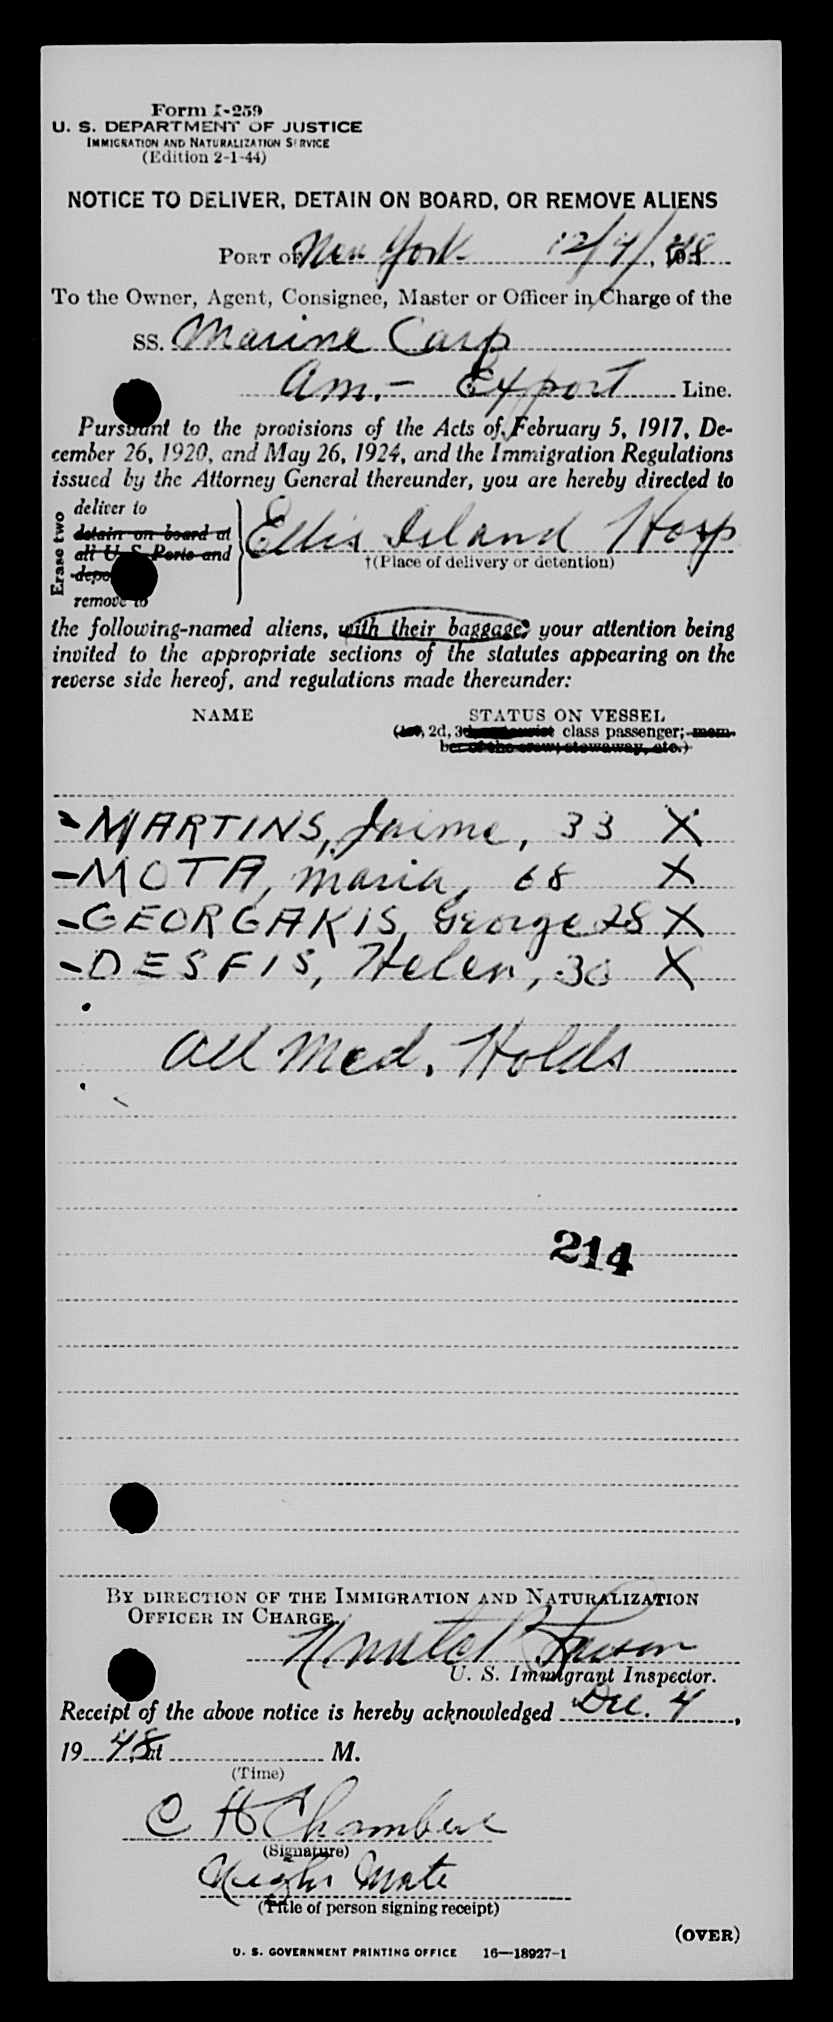 Form I-259
U. S. DEPARTMENT OF JUSTICE
IMMIGRATION AND NATURALIZATION SERVICE
(Edition 2-1-44)
NOTICE TO DELIVER, DETAIN ON BOARD, OR REMOVE ALIENS
PORT OF New York 12/4/, 48
To the Owner, Agent, Consignee, Master or Officer in Charge of the
SS. Marine Carp
Am. - Export Line.
Pursuant to the provisions of the Acts of February 5, 1917, De-
cember 26, 1920, and May 26, 1924, and the Immigration Regulations
issued by the Attorney General thereunder, you are hereby directed to
Erase two
deliver to
detain on board at
all U S Ports and
depo
remove to
Ellis Island Hosp
†(Place of delivery or detention)
the following-named aliens, with their baggage; your attention being
invited to the appropriate sections of the statutes appearing on the
reverse side hereof, and regulations made thereunder:
NAME STATUS ON VESSEL
(1st, 2d, 3d, class passenger; mem-
ber of the crew; stowaway, etc.)
- MARTINS, Jaime, 33 X
- MOTA, Maria, 68 X
- GEORGAKIS, George 28 X
- DESFIS, Helen, 30 X
All Med. Holds
214
BY DIRECTION OF THE IMMIGRATION AND NATURALIZATION
OFFICER IN CHARGE
U. S. Immigrant Inspector.
Receipt of the above notice is hereby acknowledged Dec. 4,
19 48, at M.
(Time)
C H Chambers
(Signature)
Night Mate
(Title of person signing receipt)
(OVER)
U. S. GOVERNMENT PRINTING OFFICE 16—18927-1